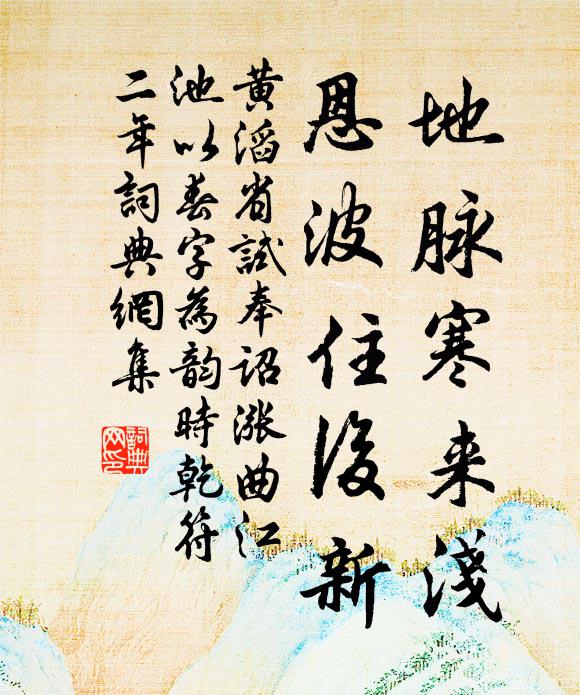 地脉寒来淺
恩波住後新
黄滔省試奉詔漲曲江
池以春字為韵時乾符
二年詞典網集
詞典
网印